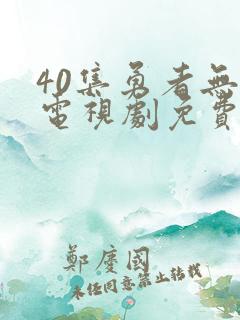 40集勇者無
電視劇免費
鄭慶國
未經同意禁止轉載